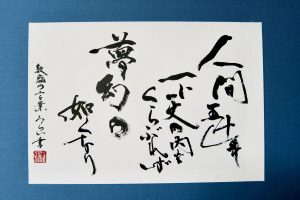 人間
五十年
下天の内を
くらぶれば
夢幻の
如くなり
敦盛の言葉